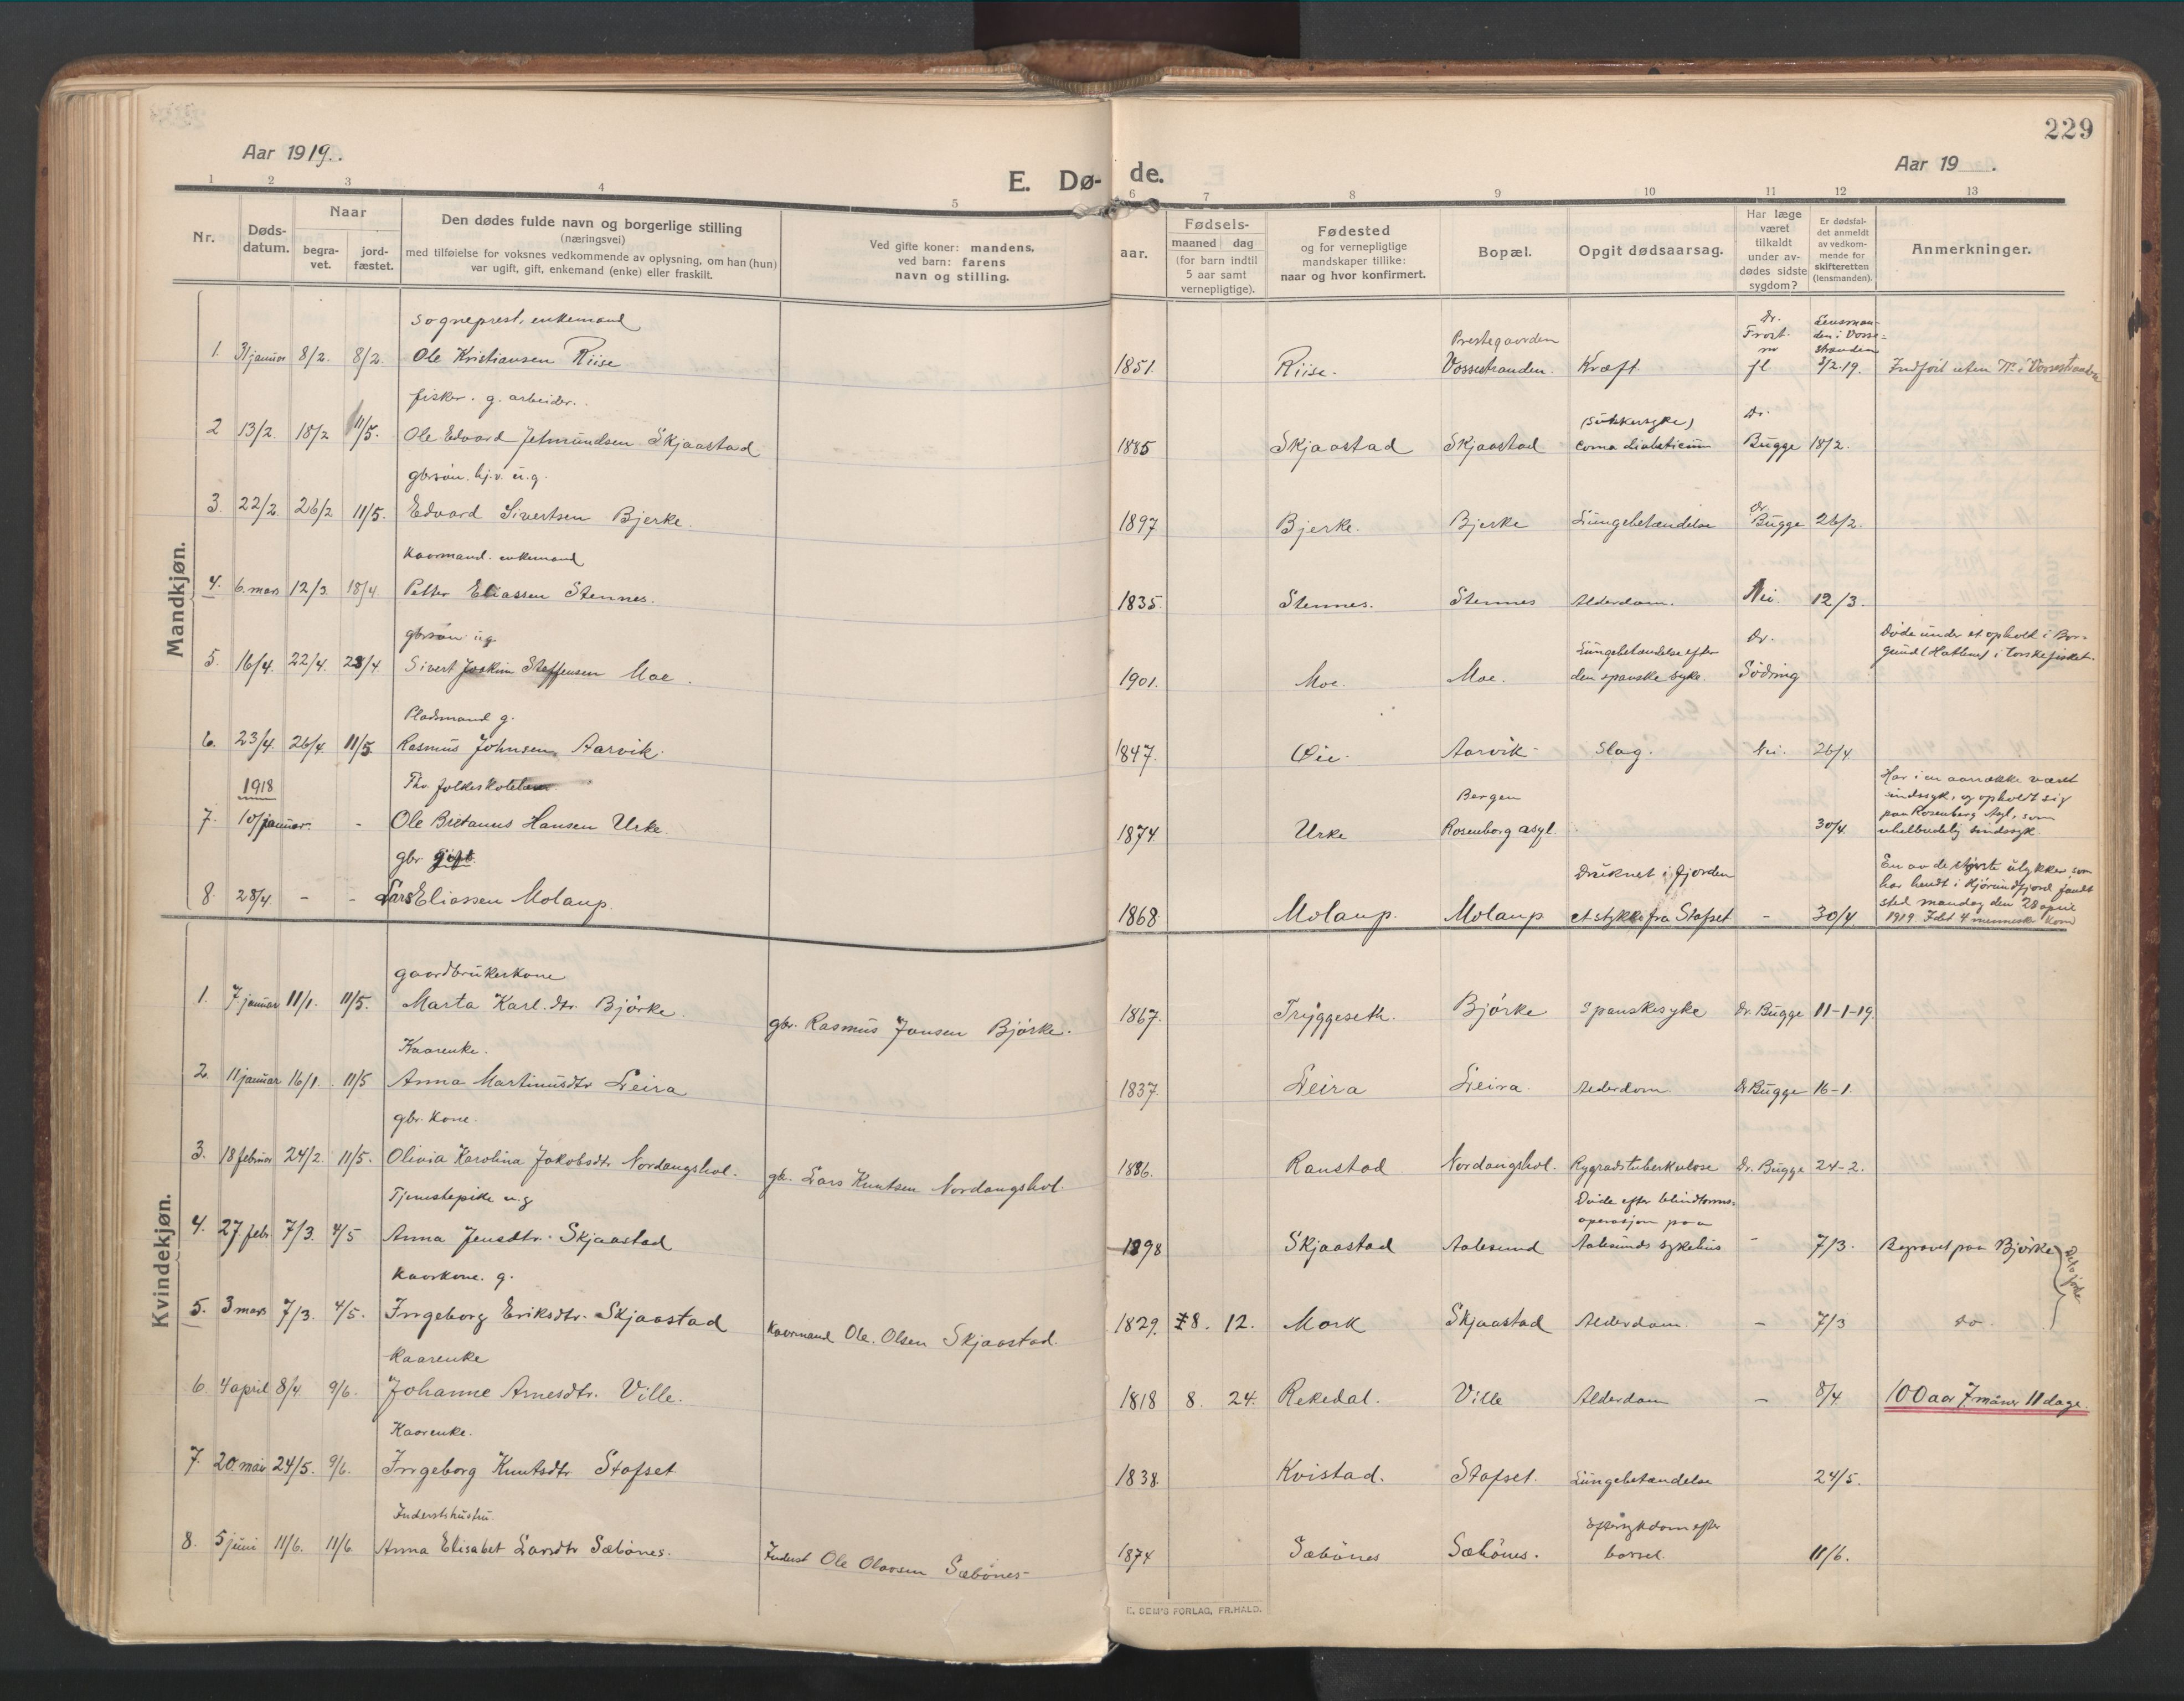 229
Aar 1919.
E. Dø-
de.
Aar 19 .
1 2 3 4 5 6 7 8 9 10 11 12 13
Nr.
Døds-
datum.
Naar
begra-
vet.
jord-
fæstet.
Den dødes fulde navn og borgerlige stilling
(næringsvei)
med tilføielse for voksnes vedkommende av oplysning, om han (hun)
var ugift, gift, enkemand (enke) eller fraskilt.
Ved gifte koner: mandens,
ved barn: farens
navn og stilling.
aar.
Fødsels-
maaned dag
(for barn indtil
5 aar samt
vernepligtige).
Fødested
og for vernepligtige
mandskaper tillike:
naar og hvor konfirmert.
Bopæl.
Opgit dødsaarsag.
Har læge
været
tilkaldt
under av-
dødes sidste
sygdom?
Er dødsfal-
det anmeldt
av vedkom-
mende for
skifteretten
(lensmanden).
Anmerkninger.
Mandkjøn.
Sogneprest, enkemand
1. 31 januar 8/2. 8/2. Ole Kristiansen Riise
1851. Riise. Prestegaarden
Vossestranden. Kræft Dr.
Frost
fl Lensman-
den i Vosse-
stranden
3/2.19. Indført uten Nr. i Vossestranden
fisker. g. arbeider.
2 13/2. 18/2 11/5. Ole Edvard Jetmundsen Skjaastad
1885 Skjaastad Skjaastad (Sukkersyke)
coma diabeticum Dr.
Bugge 18/2.
gbrsøn. hj.v. u.g.
3. 22/2. 26/2 11/5. Edvard Sivertsen Bjerke.
1897 Bjerke. Bjerke Lungebetændelse Dr.
Bugge 26/2.
Kaarmand. enkemand
4. 6. mars 12/3. 18/4. Petter Eliassen Stennes.
1835. Stennes. Stennes Alderdom. Nei. 12/3.
gbrsøn ug.
5. 16/4. 22/4. 23/4 Sivert Joakim Steffensen Moe.
1901. Moe. Moe. Lungebetændelse efter
den spanske syke. Dr.
Söding Døde under et ophold i Bor-
gund (Hatlene) i torskefisket.
Pladsmand g.
6. 23/4. 26/4. 11/5 Rasmus Johnsen Aarvik.
1847. Øie. Aarvik Slag. Nei. 26/4
1918
Thv. folkeskolelærer
7. 10/januar. - Ole Britanus Hansen Urke.
1874. Urke Bergen
Rosenborg asyl. 30/4. Har i en aarrække været
sindssyk, og opholdt sig
paa Rosenberg Asyl, som
uhelbredelig sindssyk
gbr gift.
8. 28/4. - - Lars Eliassen Molaup.
1868 Molaup. Molaup Druknet i fjorden
et stykke fra Stafset - 30/4. En av de største ulykker, som
har hendt i Hjørundfjord fandt
sted mandag den 28 april
1919. Idet 4 mennesker kom
Kvindekjøn.
gaardbrukerkone
1. 7 januar 11/1. 11/5. Marta Karl.dtr. Bjørke. gbr. Rasmus Jonsen Bjørke.
1867. Tryggeseth. Bjørke Spanskesyke Dr. Bugge 11-1-19.
Kaarenke.
2. 11 januar 16/1 11/5 Anna Martinusdtr Leira
1837. Leira Leira. Alderdom Dr Bugge 16-1.
gbr. kone.
3. 18 februar 24/2. 11/5. Olivia Karolina Jakobsdtr Nordangshol. gbr. Lars Knutsen Nordangshol.
1886. Ranstad Nordangshol. Rygradstuberkulose Dr. Bugge 24-2.
Tjenestepike u.g
4. 27. febr 7/3. 4/5 Anna Jensdtr. Skjaastad
1898 Skjaastad Aalesund Døde efter blindtarms-
operasjon paa
Aalesunds sykehus - 7/3. Begravet paa Bjørke
Kaarkone. g.
5. 3 mars 7/3. 4/5. Ingeborg Eriksdtr. Skjaastad Kaarmand Ole Olsen Skjaastad.
1829. 8. 12. Mork Skjaastad Alderdom. - 7/3 do.
Kaarenke
6. 4 april 8/4. 9/6. Johanne Arnesdtr. Ville.
1818 8. 24. Rekedal. Ville Alderdom - 8/4 100 aar 7 mäner 11 dage.
Kaarenke.
7. 20. mai 24/5. 9/6. Ingeborg Knutsdtr Stafset
1838 Kvistad. Stafset. Lungebetændelse 24/5.
Inderstshustru.
8. 5 juni 11/6. 11/6. Anna Elisabet Larsdtr Sæbønes. Inderst Ole Olavsen Sæbønes
1874 Sæbønes Sæbønes. Eftersykdom efter
barsel. 11/6.
E. SEM'S FORLAG, FR.HALD.